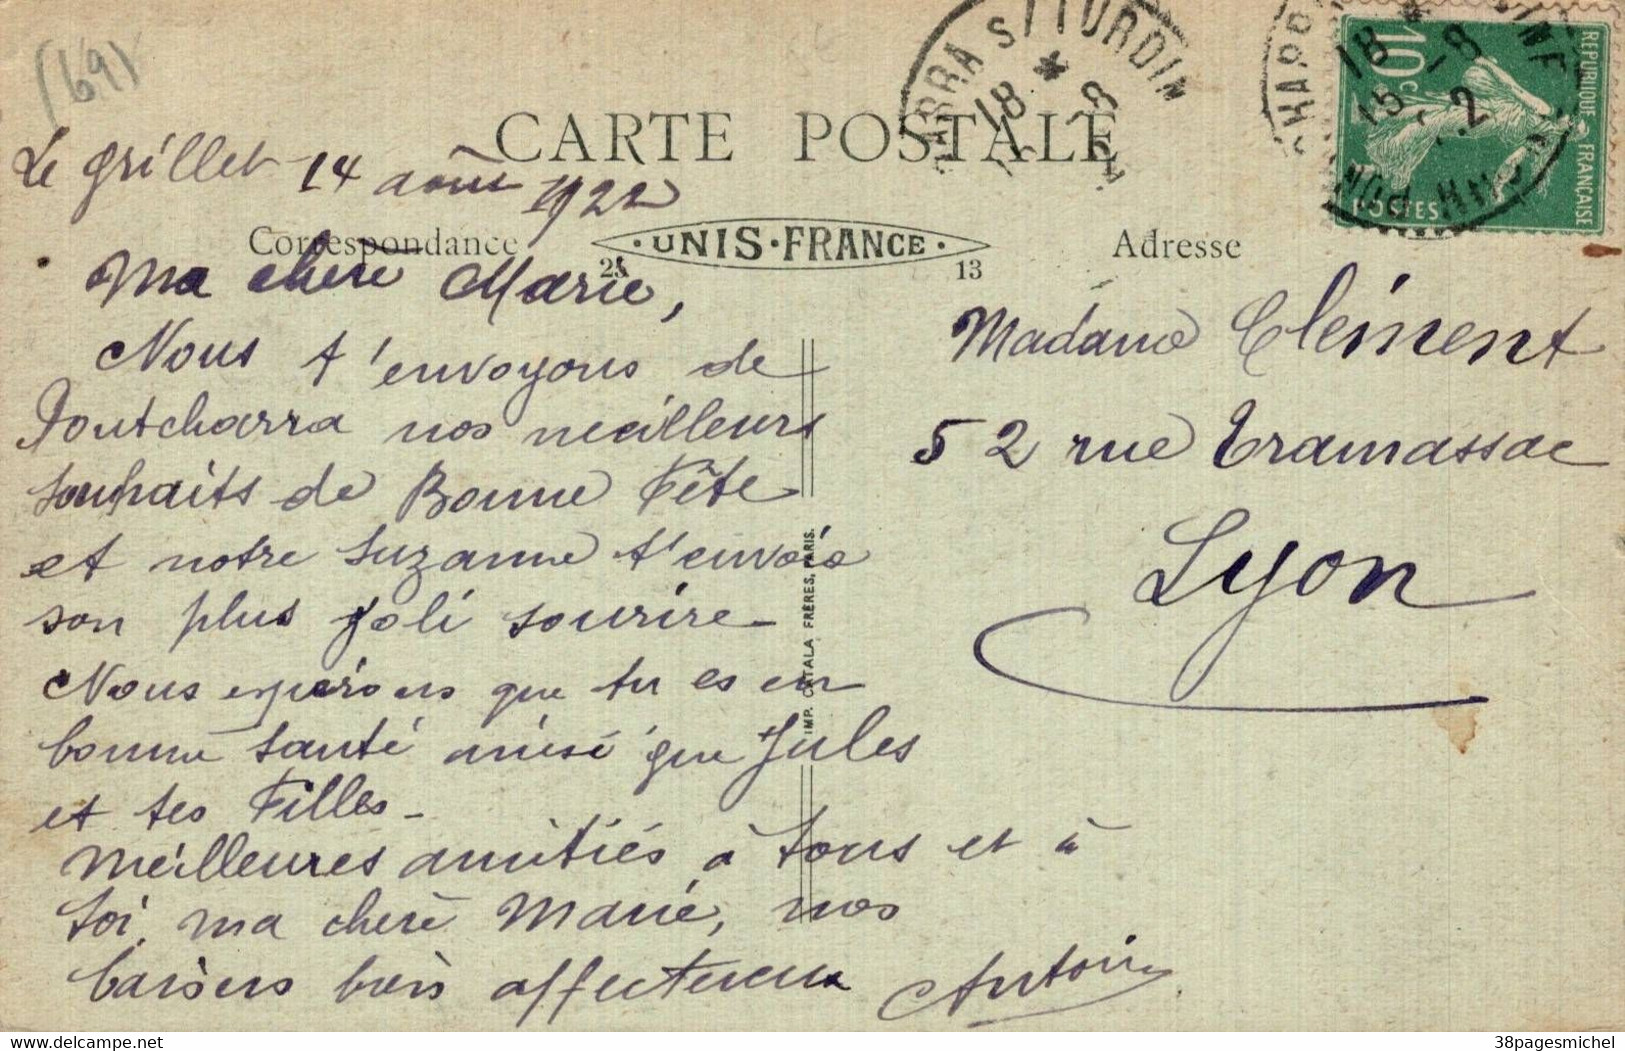 (69)
CARTE POSTALE
Le Grillet 14 août 1922
Correspondance
UNIS-FRANCE
21 13
Adresse
Ma chère Marie,
Nous t'envoyons de
Pontcharra nos meilleurs
souhaits de Bonne Fête
et notre Suzanne t'envoie
son plus joli sourire
Nous espérons que tu es en
bonne santé ainsi que Jules
et tes Filles -
Meilleures amitiés à tous et à
toi, ma chère Marie, nos
baisers bien affectueux
Antoine
Madame Clément
52 rue Tramassac
Lyon
IMP. CATALA FRÈRES, PARIS.
REPUBLIQUE FRANÇAISE
10c
POSTES
18 * 8
18 * 
15 -8
38pagesmichel